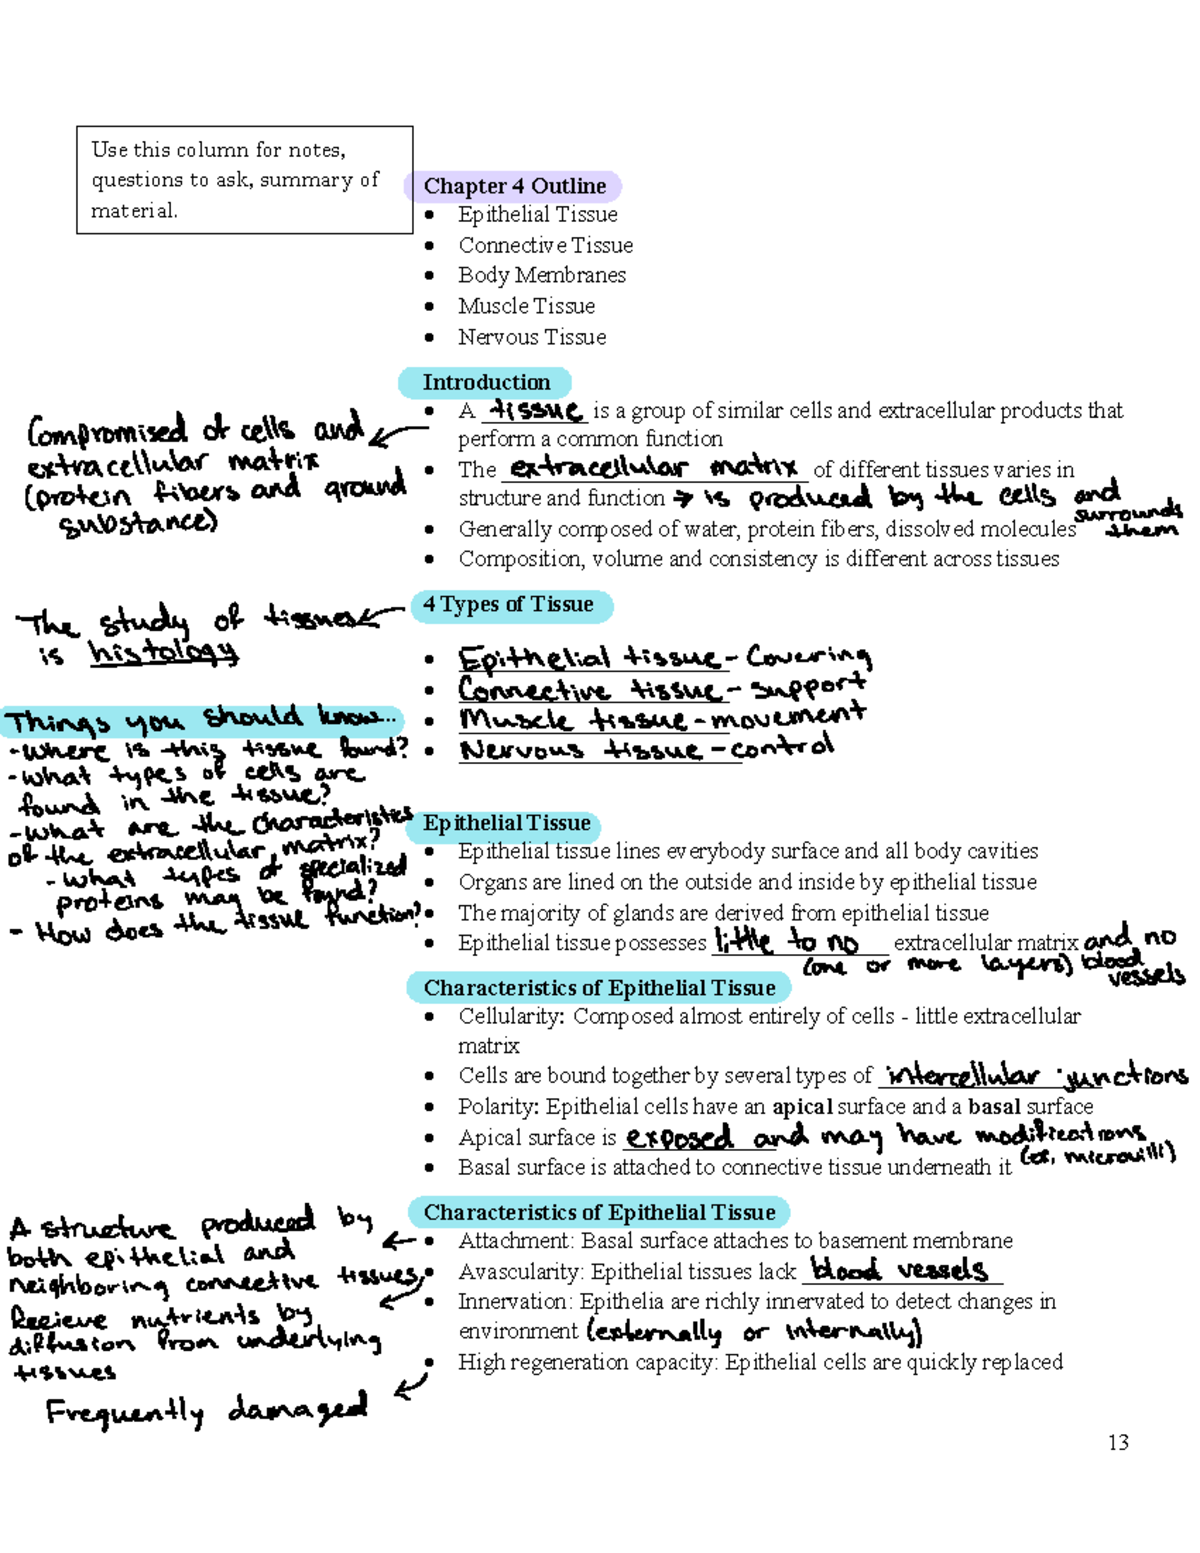 Use this column for notes,
questions to ask, summary of
material.
Chapter 4 Outline
• Epithelial Tissue
• Connective Tissue
• Body Membranes
• Muscle Tissue
• Nervous Tissue
Introduction
• A tissue is a group of similar cells and extracellular products that
perform a common function
• The extracellular matrix of different tissues varies in
structure and function → is produced by the cells and
surrounds
them
• Generally composed of water, protein fibers, dissolved molecules
• Composition, volume and consistency is different across tissues
Compromised of cells and
extracellular matrix
(protein fibers and ground
substance)
4 Types of Tissue
The study of tissues
is histology
• Epithelial tissue - Covering
• Connective tissue - support
• Muscle tissue - movement
• Nervous tissue - control
Things you should know...
- Where is this tissue found?
- What types of cells are
found in the tissue?
- What are the characteristics
of the extracellular matrix?
- What types of specialized
proteins may be found?
- How does the tissue function?
Epithelial Tissue
• Epithelial tissue lines everybody surface and all body cavities
• Organs are lined on the outside and inside by epithelial tissue
• The majority of glands are derived from epithelial tissue
• Epithelial tissue possesses little to no extracellular matrix and no
(one or more layers) blood
vessels
Characteristics of Epithelial Tissue
• Cellularity: Composed almost entirely of cells - little extracellular
matrix
• Cells are bound together by several types of intercellular junctions
• Polarity: Epithelial cells have an apical surface and a basal surface
• Apical surface is exposed and may have modifications
(ex, microvilli)
• Basal surface is attached to connective tissue underneath it
Characteristics of Epithelial Tissue
• Attachment: Basal surface attaches to basement membrane
• Avascularity: Epithelial tissues lack blood vessels
• Innervation: Epithelia are richly innervated to detect changes in
environment (externally or internally)
• High regeneration capacity: Epithelial cells are quickly replaced
A structure produced by
both epithelial and
neighboring connective tissues
Recieve nutrients by
diffusion from underlying
tissues
Frequently damaged
13